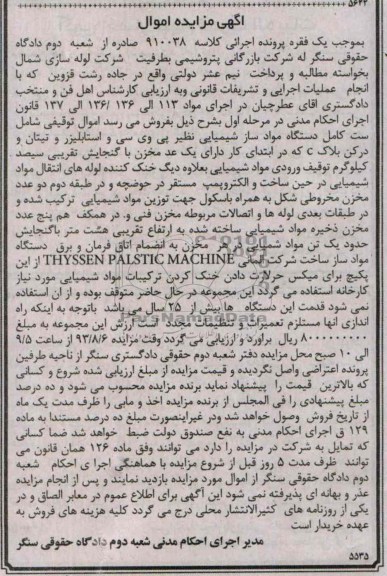 ۵۶۲۲
آگهی مزایده اموال
بموجب یک فقره پرونده اجرائی کلاسه ۹۱۰۰۳۸ صادره از شعبه دوم دادگاه
حقوقی سنگر له شرکت بازرگانی پتروشیمی بطرفیت شرکت لوله سازی شمال
بخواسته مطالبه و پرداخت نیم عشر دولتی واقع در جاده رشت قزوین که با
انجام عملیات اجرایی و تشریفات قانونی وبه ارزیابی کارشناس اهل فن و منتخب
دادگستری اقای عطرچیان در اجرای مواد ۱۱۳ الی ۱۳۶ /۱۳۶ الی ۱۳۷ قانون
اجرای احکام مدنی در مرحله اول بشرح ذیل بفروش می رسد اموال توقیفی شامل
ست کامل دستگاه مواد ساز شیمیایی نظیر پی وی سی و استابلیزر و تیتان و
درکن بلاک c که در ابتدای کار دارای یک عد مخزن با گنجایش تقریبی سیصد
کیلوگرم توقیف ورودی مواد شیمیایی بعلاوه دیگ خنک کننده لوله های انتقال مواد
شیمیایی در حین ساخت و الکتروپمپ مستقر در حوضچه و در طبقه دوم دو عدد
مخزن مخروطی شکل به همراه باسکول جهت توزین مواد شیمیایی ترکیب شده و
در طبقات بعدی لوله ها و اتصالات مربوطه مخزن فنی و. در همکف هم پنج عدد
مخزن ذخیره مواد شیمیایی ساخته شده به ارتفاع تقریبی هشت متر باگنجایش
حدود یک تن مواد شیمیایی در هر مخزن به انضمام اتاق فرمان و برق دستگاه
مواد ساز ساخت شرکت آلمانی THYSSEN PALSTIC MACHINE از این
پکیج برای میکس حرارت دادن خنک کردن ترکیبات مواد شیمیایی مورد نیاز
کارخانه استفاده می گردد این مجموعه در حال حاضر متوقف بوده و از ان استفاده
نمی شود قدمت این دستگاه ها بیش از ۲۵ سال می باشد باتوجه به اینکه راه
اندازی آنها مستلزم تعمیرات و تنظیمات مجدد است ارزش این مجموعه به مبلغ
ریال برآورد و ارزیابی می گردد وقت مزایده ۹۳/۸/۶ از ساعت ۹/۵
الی ۱۰ صبح محل مزایده دفتر شعبه دوم حقوقی دادگستری سنگر از ناحیه طرفین
پرونده اعتراضی واصل نگردیده و قیمت مزایده از مبلغ ارزیابی شده شروع و کسانی
که بالاترین قیمت را پیشنهاد نماید برنده مزایده محسوب می شود و ده درصد
مبلغ پیشنهادی را فی المجلس از برنده مزایده اخذ و مابی را ظرف مدت یک ماه
از تاریخ فروش وصول خواهد شد ودر غیراینصورت مبلغ ده درصد مستندا به ماده
۱۲۹ ق اجرای احکام مدنی به نفع صندوق دولت ضبط خواهد شد ضما کسانی
که تمایل به شرکت در مزایده را دارد می توانند وفق ماده ۱۲۶ همان قانون می
توانند ظرف مدت ۵ روز قبل از شروع مزایده با هماهنگی اجرا ی احکام شعبه
دوم دادگاه حقوقی سنگر از اموال مورد مزایده بازدید نمایند و پس از انجام مزایده
عذر و بهانه ای پذیرفته نمی شود این آگهی برای اطلاع عموم در معابر الصاق و در
یکی از روزنامه های کثیرالانتشار محلی درج می گردد کلیه هزینه های فروش به
عهده خریدار است
مدیر اجرای احکام مدنی شعبه دوم دادگاه حقوقی سنگر
۵۵۳۵